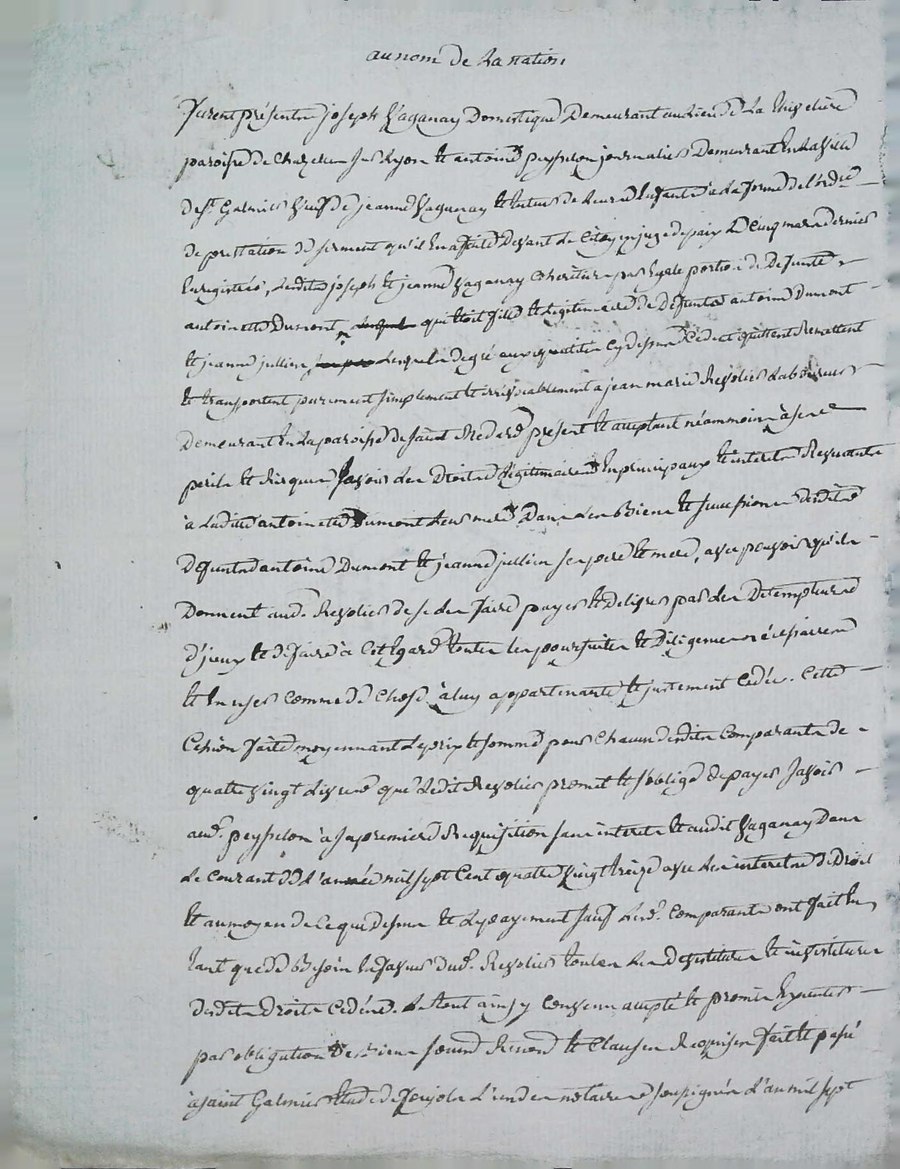 au nom de La nation
furent présentes joseph Vaganay Domestique Demeurant au Lieu de La
paroisse de Chazelles sur Lyon Et antoine peysselon journalier Demeurant En La Ville
de st Galmier Veuf de jeanne Vaganay Et tuteur de Leurs Enfants à La forme de l'ordre
de prestation de serment qu'il En a faite Devant Le Citoyen juge de paix Le Cinq mars dernier
Enregistrée, Lesdits joseph Et jeanne Vaganay Cohéritiers par Egale portion de Defunte
antoinette Dumont qui Etoit fille Et Légitimaire de Defunts antoine Dumont
Et jeanne jullien Lesquels de gré aux qualités Cy dessus Cèdent quittent Remettent
Et transportent purement simplement Et irrévocablement a jean marie Revolier Laboureur
Demeurant En La paroisse de saint Medard présent Et acceptant néammoins à ses
perils Et Risques savoir Les Droits Légitimaires En principaux Et intérêts Revenants
à Ladite antoinette Dumont Leur mere Dans Les Biens Et successions desdits
Defunts antoine Dumont Et jeanne jullien ses pere Et mere, avec pouvoir qu'ils
Donnent aud. Revolier de se Les faire payer Et Délivrer par Les Détempteurs
d'jceux Et de faire à Cet Egard toutes Les poursuites Et Diligences nécessaires
Et En user Comme de Chose à Luy appartenante Et justement Cédée. Cette
Cession faite moyennant Le prix Et somme pour Chacun desdits Comparants de
quatre vingt Livres que Ledit Revolier promet Et s'oblige de payer savoir
aud. peysselon à sa premiere Requisition sans intérêts Et audit Vaganay Dans
Le Courant de L'année mil sept Cent quatre Vingt treize avec Les interets de Droit
Et au moyen de Ce que dessus Et du payement sauf Lesd. Comparants ont fait En
tant que de Besoin En faveur dud. Revolier toutes Les destitutes Et institutes
desdits Droits Cédés. Le tout ainsy Convenu accepté Et promis Exécuter
par obligation de Biens soumis Renond Et Clauses Requises fait Et passé
à saint Galmier Etude de L'un des notaires soussignés L'an mil sept